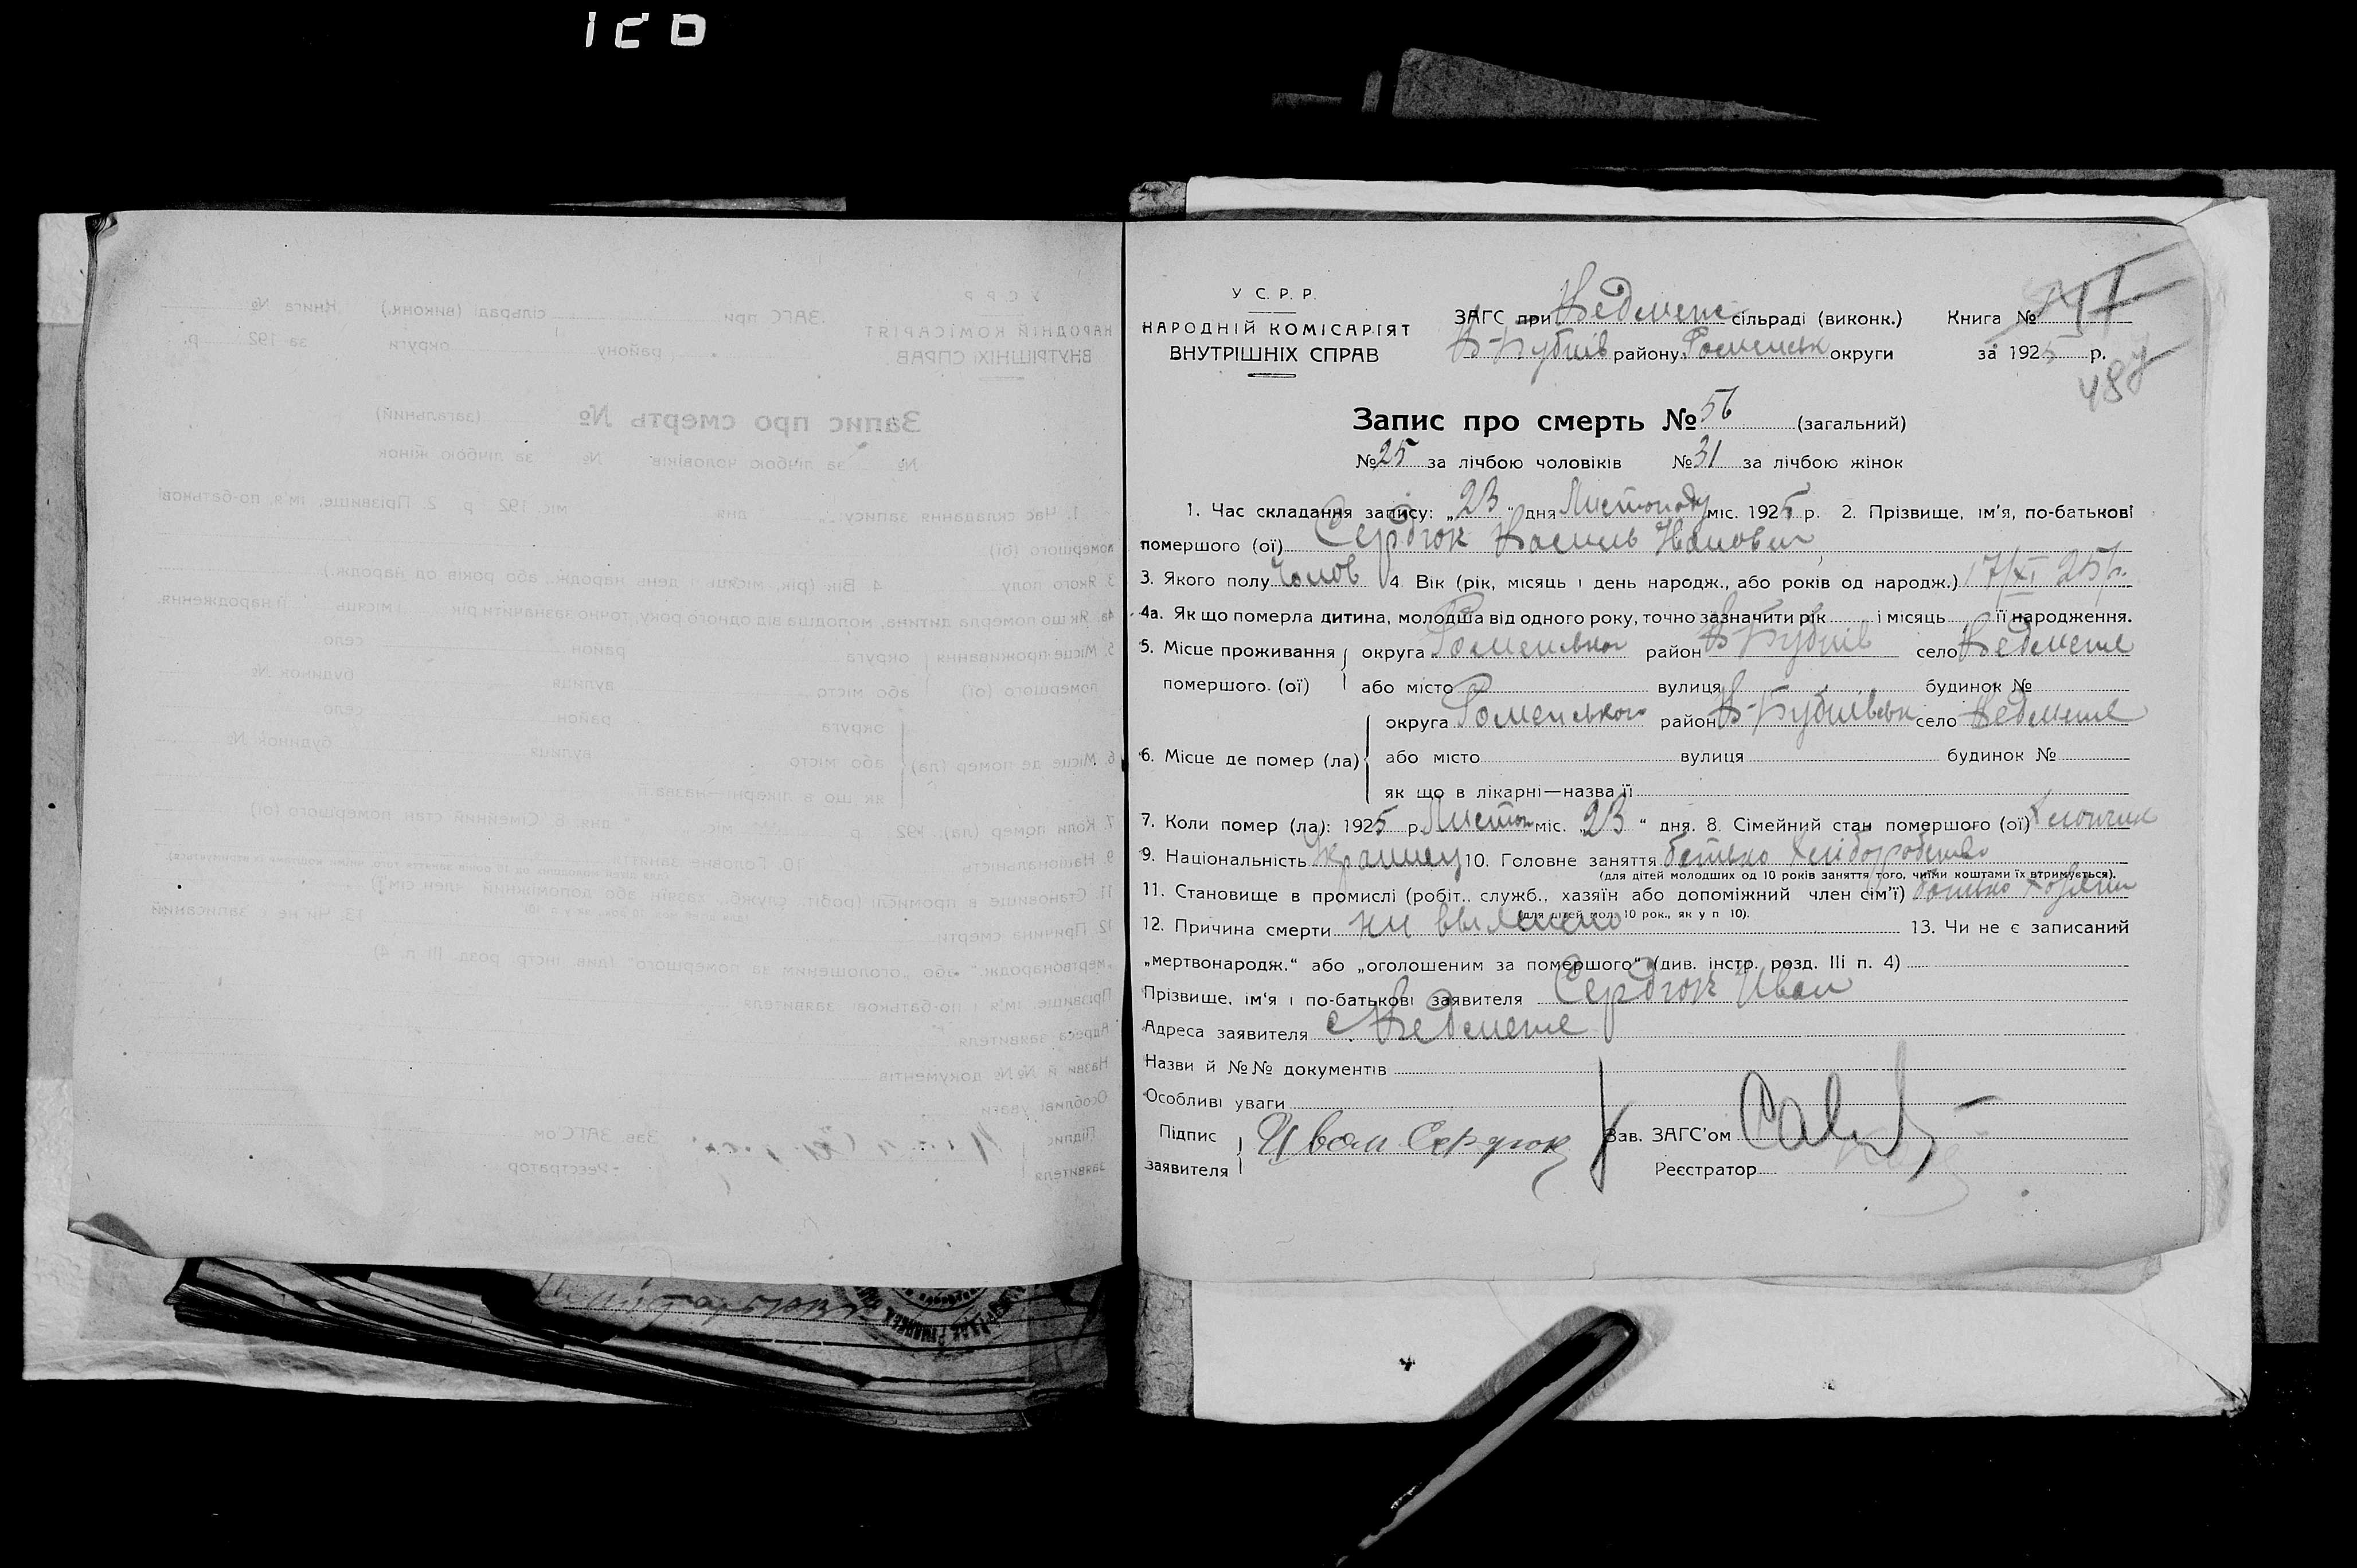 У С. Р. Р.
НАРОДНІЙ КОМІСАРІЯТ
ВНУТРІШНІХ СПРАВ
ЗАГС при Ведмеже сільраді (виконк.) Книга № XII
В-Бубнів району Роменськ округи за 1925 р.
487
Запис про смерть № 56 (загальний)
№ 25 за лічбою чоловіків № 31 за лічбою жінок
1. Час складання запису: „23“ дня Листопаду міс. 1925 р. 2. Прізвище, ім'я, по-батькові
помершого (ої) Сердюк Василь Іванович
3. Якого полу Чолов 4. Вік (рік, місяць і день народж., або років од народж.) 17/XI 25 р.
4а. Як що померла дитина, молодша від одного року, точно зазначити рік і місяць її народження.
5. Місце проживання округа Роменського район В-Бубнів село Ведмеже
помершого. (ої) або місто вулиця будинок №
округа Роменського район В-Бубнівськ село Ведмеже
6. Місце де помер (ла) або місто вулиця будинок №
як що в лікарні—назва її
7. Коли помер (ла): 1925 р. Листоп міс. „23“ дня. 8. Сімейний стан помершого (ої) Хлопчик
9. Національність Украинец 10. Головне заняття батько хліборобство
(для дітей молодших од 10 років заняття того, чиїми коштами їх втримується).
11. Становище в промислі (робіт., служб., хазяїн або допоміжний член сім'ї) батько хазяїн
(для дітей мол. 10 рок., як у п 10).
12. Причина смерти ни выяснено 13. Чи не є записаний
„мертвонародж.“ або „оголошеним за помершого“ (див. інстр. розд. III п. 4)
Прізвище, ім'я і по-батькові заявителя Сердюк Иван
Адреса заявителя с. Ведмеже
Назви й №№ документів
Особливі уваги
Підпис заявителя Иван Сердюк Зав. ЗАГС'ом
Реєстратор